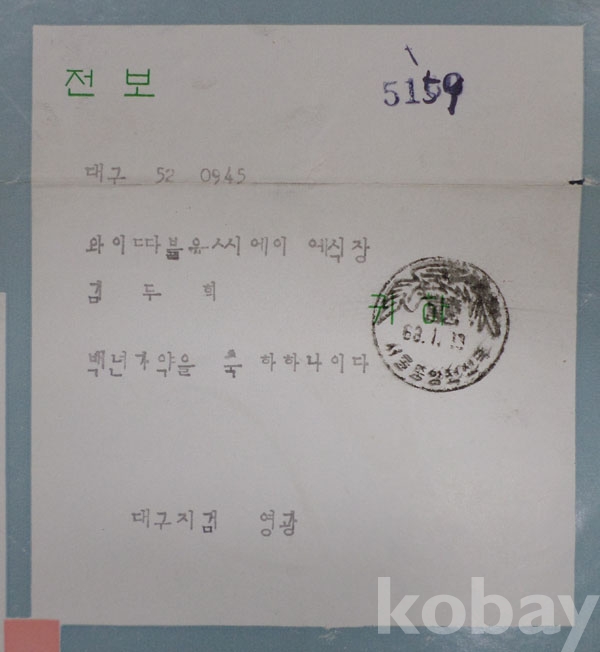 전보
5159
대구 52 0945
와이따블유씨에이 예식장
김 두 희
귀하
68.1.13
서울중앙전신국
백년가약을 축 하하나이다
대구지검 영광
kobay